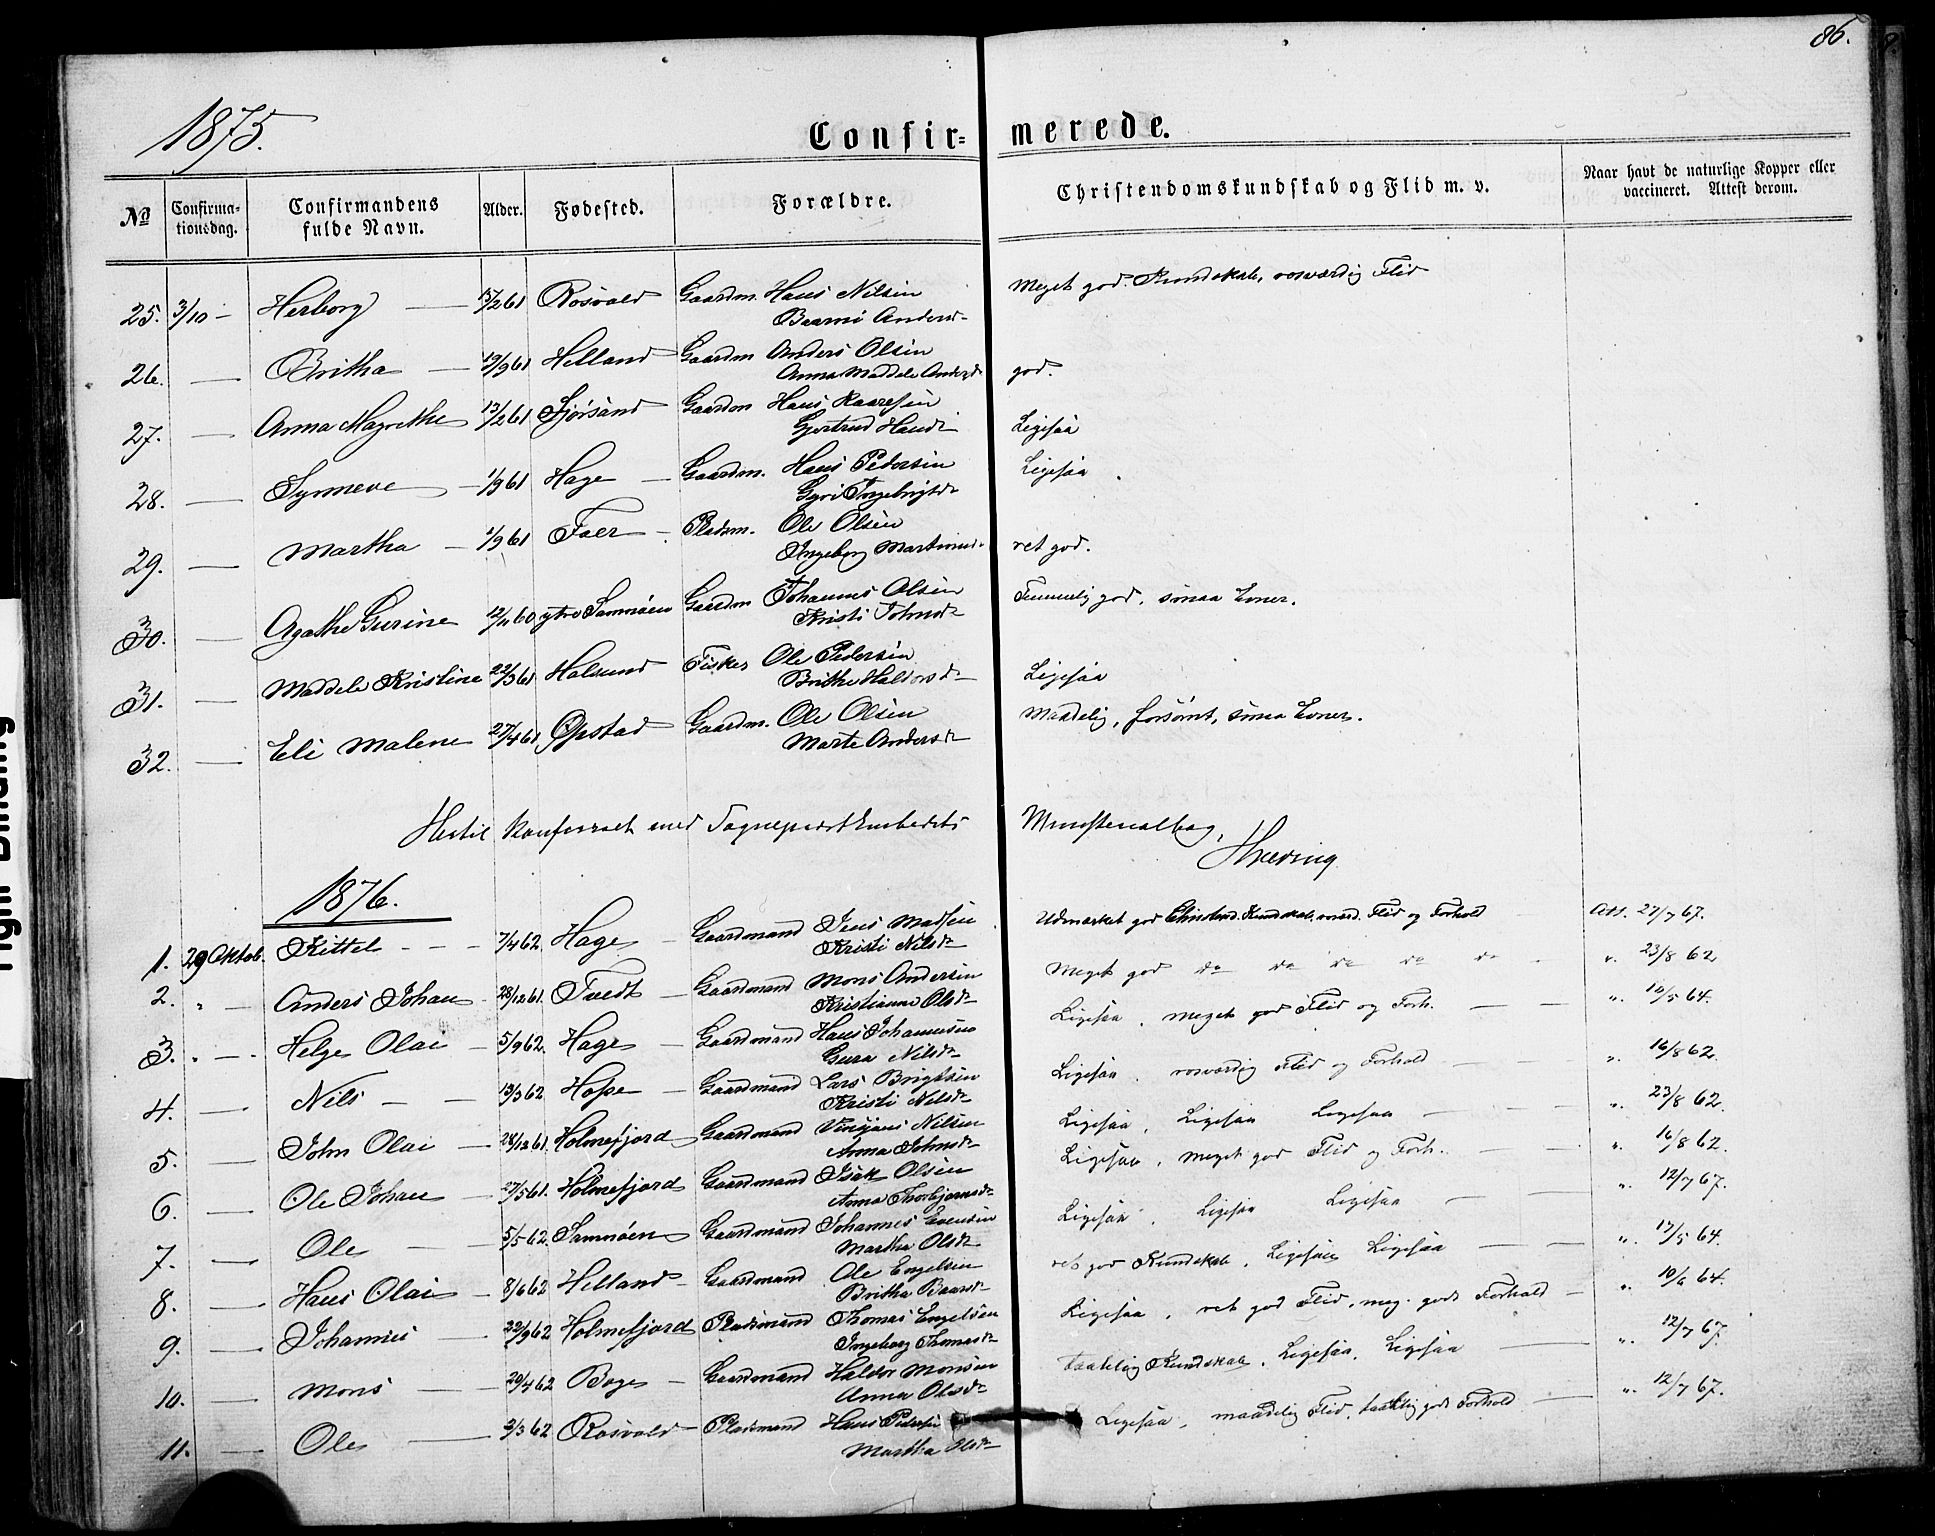 86.
1875.
Confirmerede.
No
Confirmationsdag.
Confirmandens fulde Navn.
Alder.
Fødested.
Forældre.
Christendomskundskab og Flid m. v.
Naar havt de naturlige Kopper eller vaccineret. Attest derom.
25. 3/10 — Herborg — 15/2 61 Rosvold Gaardm. Hans Nilsen Meget god Kundskab, rosværdig Flid
Andersd.
26. — Britha — 19/9 61 Helland Gaardm Anders Olsen god.
Anna Maddele Andersd
27. — Anna Magrethe 13/2 61 Sjørsand Gaardm Hans Kaaresen Ligesaa
Gjertrud Hansd.
28. — Synneve — 1/9 61 Hage — Gaardm. Hans Pedersen Ligesaa
Gyri Ingebrigtsd.
29. — Martha — 1/9 61 Foer — Pladsm. Ole Olsen ret god.
Ingeborg
30. — Agathe Gurine 12/11 60 ytre Samnøen Gaardm Johannes Olsen Temmelig god, smaa Evner.
Kristi Johnsd.
31. Maddele Kristine 22/3 61 Halsund Fisker Ole Pedersen Ligesaa
Brithe Haldorsd.
32. — Eli Malene 27/4 61 Øpstad Gaardm. Ole Olsen Maadelig, forsømt, smaa Evner.
Marte Andersd.
Hertil konfereret med Sognepræstembedets Ministerialbog,
1876.
1. 29 Oktob. Kittel - - - 7/4 62. Hage — Gaardmand Jens Madsen Udmærket god Christend. Kundskab, Flid og Forhold Att. 27/7 67.
Kristi Nilsd.
2. " — Anders Johan 28/12 61. Tvedt — Gaardmand Mons Andersen Meget god do do do do do " 23/8 62
Kristianne Olsd.
3. " — Helge Olai — 5/9 62. Hage — Gaardmand Hans Johannesen Ligesaa, meget god Flid og Forh. — " 10/5 64.
Gura Nilsd.
4. — Nils — — 13/3 62 Hope — Gaardmand Lars Brigtsen Ligesaa, rosværdig Flid og Forhold — " 16/8 62.
Kristi Nilsd.
5. — John Olai — 28/12 61. Holmefjord Gaardmand Nilsen Ligesaa, Ligesaa Ligesaa — " 23/8 62.
Anna Johnsd.
6. — Ole Johan — 27/5 61. Holmefjord Gaardmand Isak Olsen Ligesaa, meget god Flid og Forh. — " 16/8 62.
Anna Thorbjørnsd.
7. — Ole — 5/5 62. Samnøen Gaardmand Johannes Evensen Ligesaa, Ligesaa Ligesaa — " 12/7 67.
Martha Olsd.
8. — Hans Olai — 8/6 62 Helland — Gaardmand Ole Engelsen ret god Kundskab, Ligesaa Ligesaa — " 17/5 64.
Britha Baarsd.
9. — Johannes — 22/9 62 Holmefjord Pladsmand Thomas Engelsen Ligesaa, ret god Flid, meg. godt Forhold — " 10/6 64.
Ingeborg Thomasd.
10. — Mons — 20/4 62 Boge — Gaardmand Haldor Monsen taalelig Kundskab, Ligesaa, Ligesaa — " 12/7 67.
Anna Olsd.
11. — Ole — 3/3 62 Rosvold — Pladsmand Hans Pedersen Ligesaa, maadelig Flid, taalelig godt Forhold — " 12/7 67.
Martha Olsd.